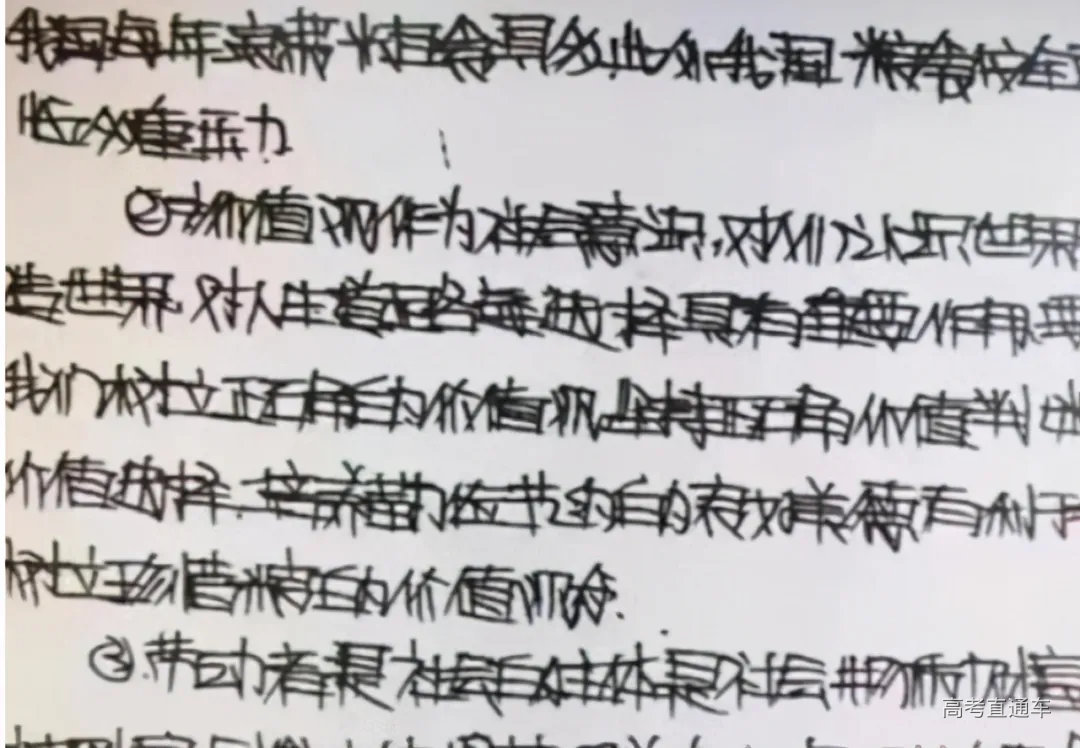 我国每年浪费粮食具多,此外我国粮食安全
临众重压力.
②价值观作为社会意识,对人们认识世界
造世界.对人生道路每选择具有重要作用.要
我们树立正确的价值观,坚持正确价值判断
价值选择.培养勤俭节约的良好美德有利于
树立珍惜粮食的价值观念.
③.劳动者是社会的主体是社会物质财富
高考直通车